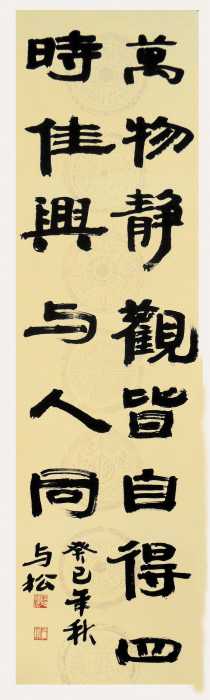 萬物靜觀皆自得四
時佳興与人同
癸巳年秋
与松